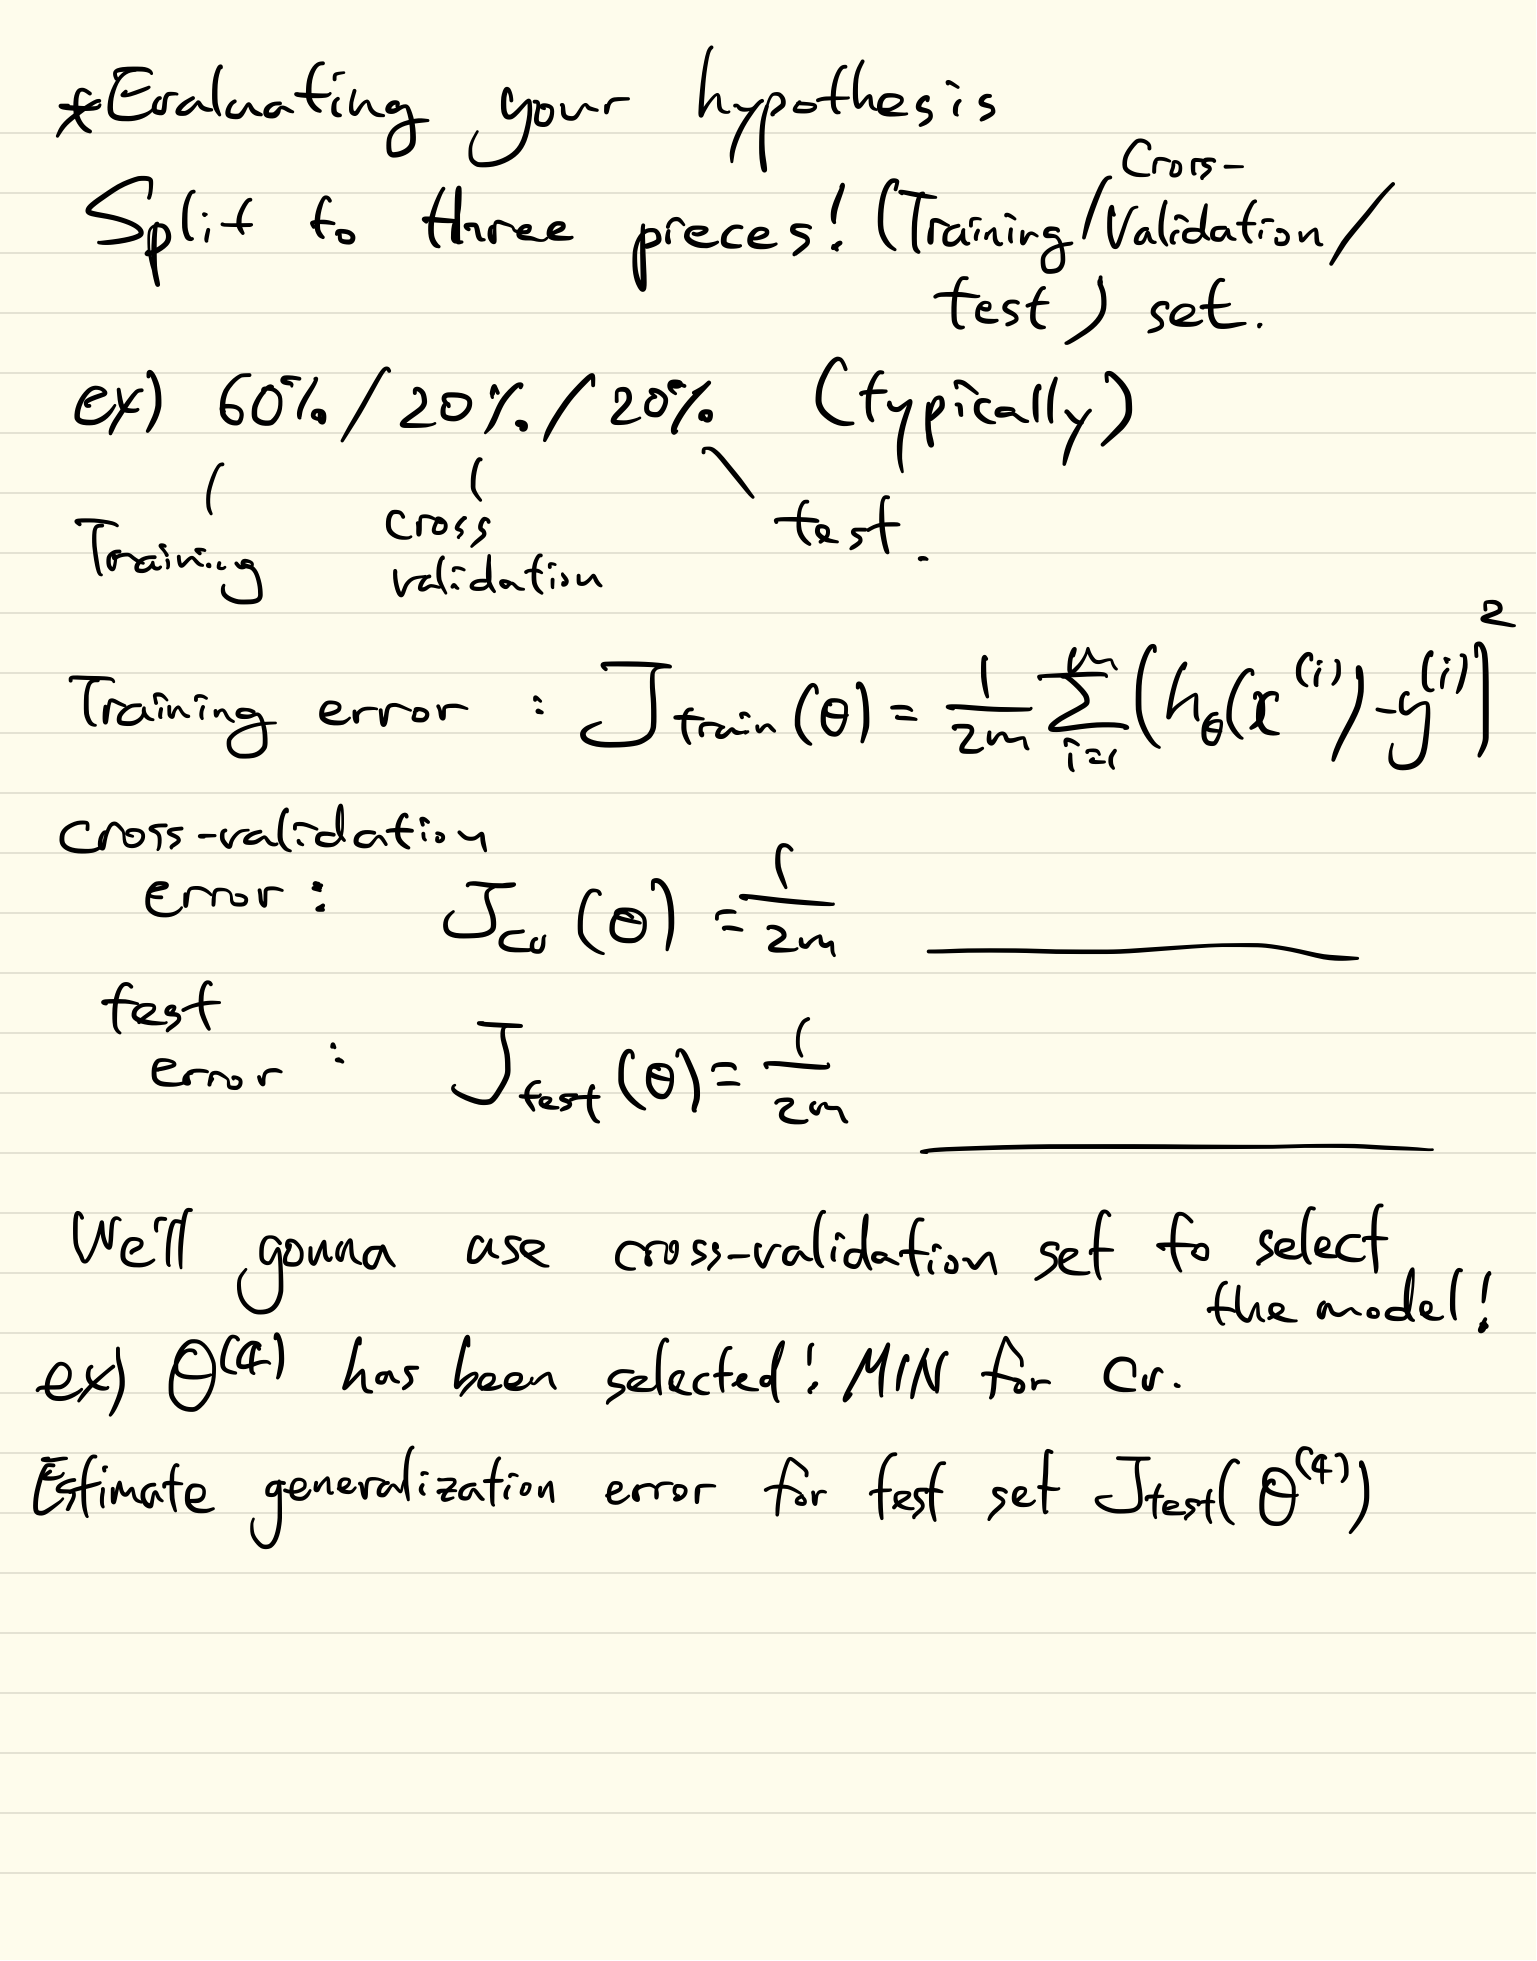 *Evaluating your hypothesis
Cross-
Split to three preces! (Training/Validation/
test) set.
ex) 60%/20%/20% (typically)
Training cross validation test.
Training error : J_train(θ) = 1/2m Σ_{i=1}^{m} (h_θ(x^(i)) - y^(i))^2
cross-validation
error : J_cv(θ) = 1/2m ______
test
error : J_test(θ) = 1/2m ______
We'll gonna use cross-validation set to select
the model!
ex) θ^(4) has been selected! MIN for cv.
Estimate generalization error for test set J_test(θ^(4))